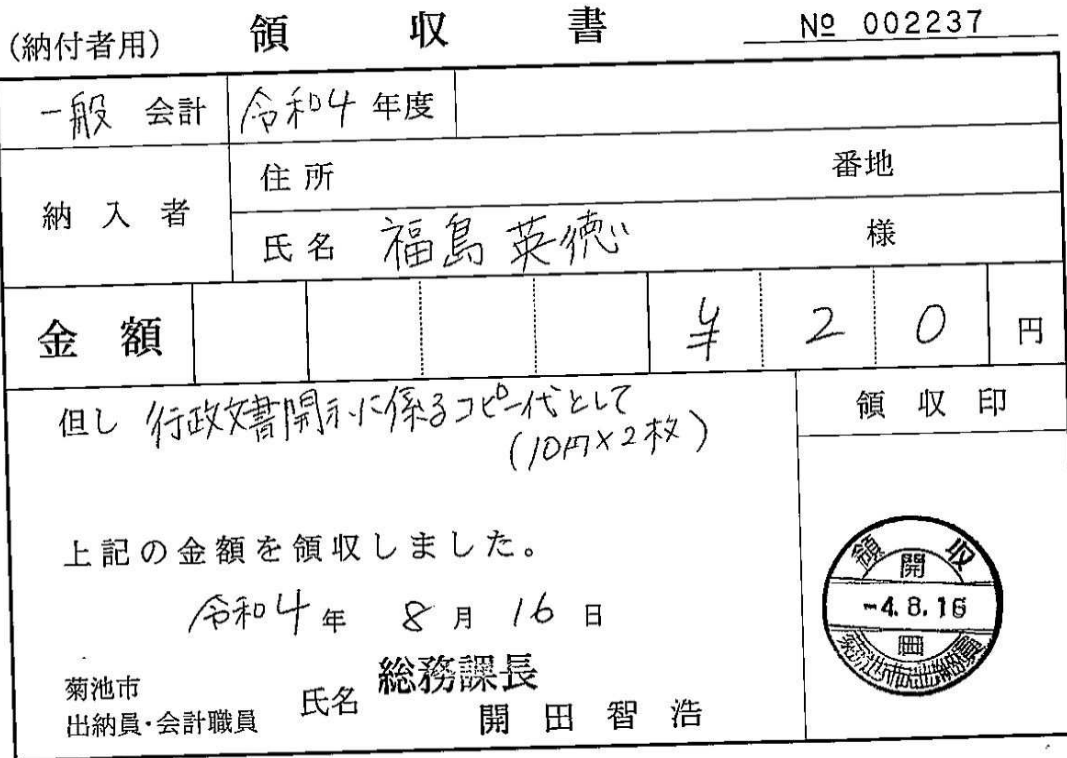 (納付者用) 領収書 № 002237
一般 会計 令和4 年度
納入者 住所 番地
氏名 福島英徳 様
金額 ¥20円
但し 行政文書開示に係るコピー代として
(10円×2枚)
領収印
上記の金額を領収しました。
令和4年 8月 16日
菊池市
出納員・会計職員 氏名 総務課長
開田智浩
領収
開
-4.8.16
田
菊池市出納員